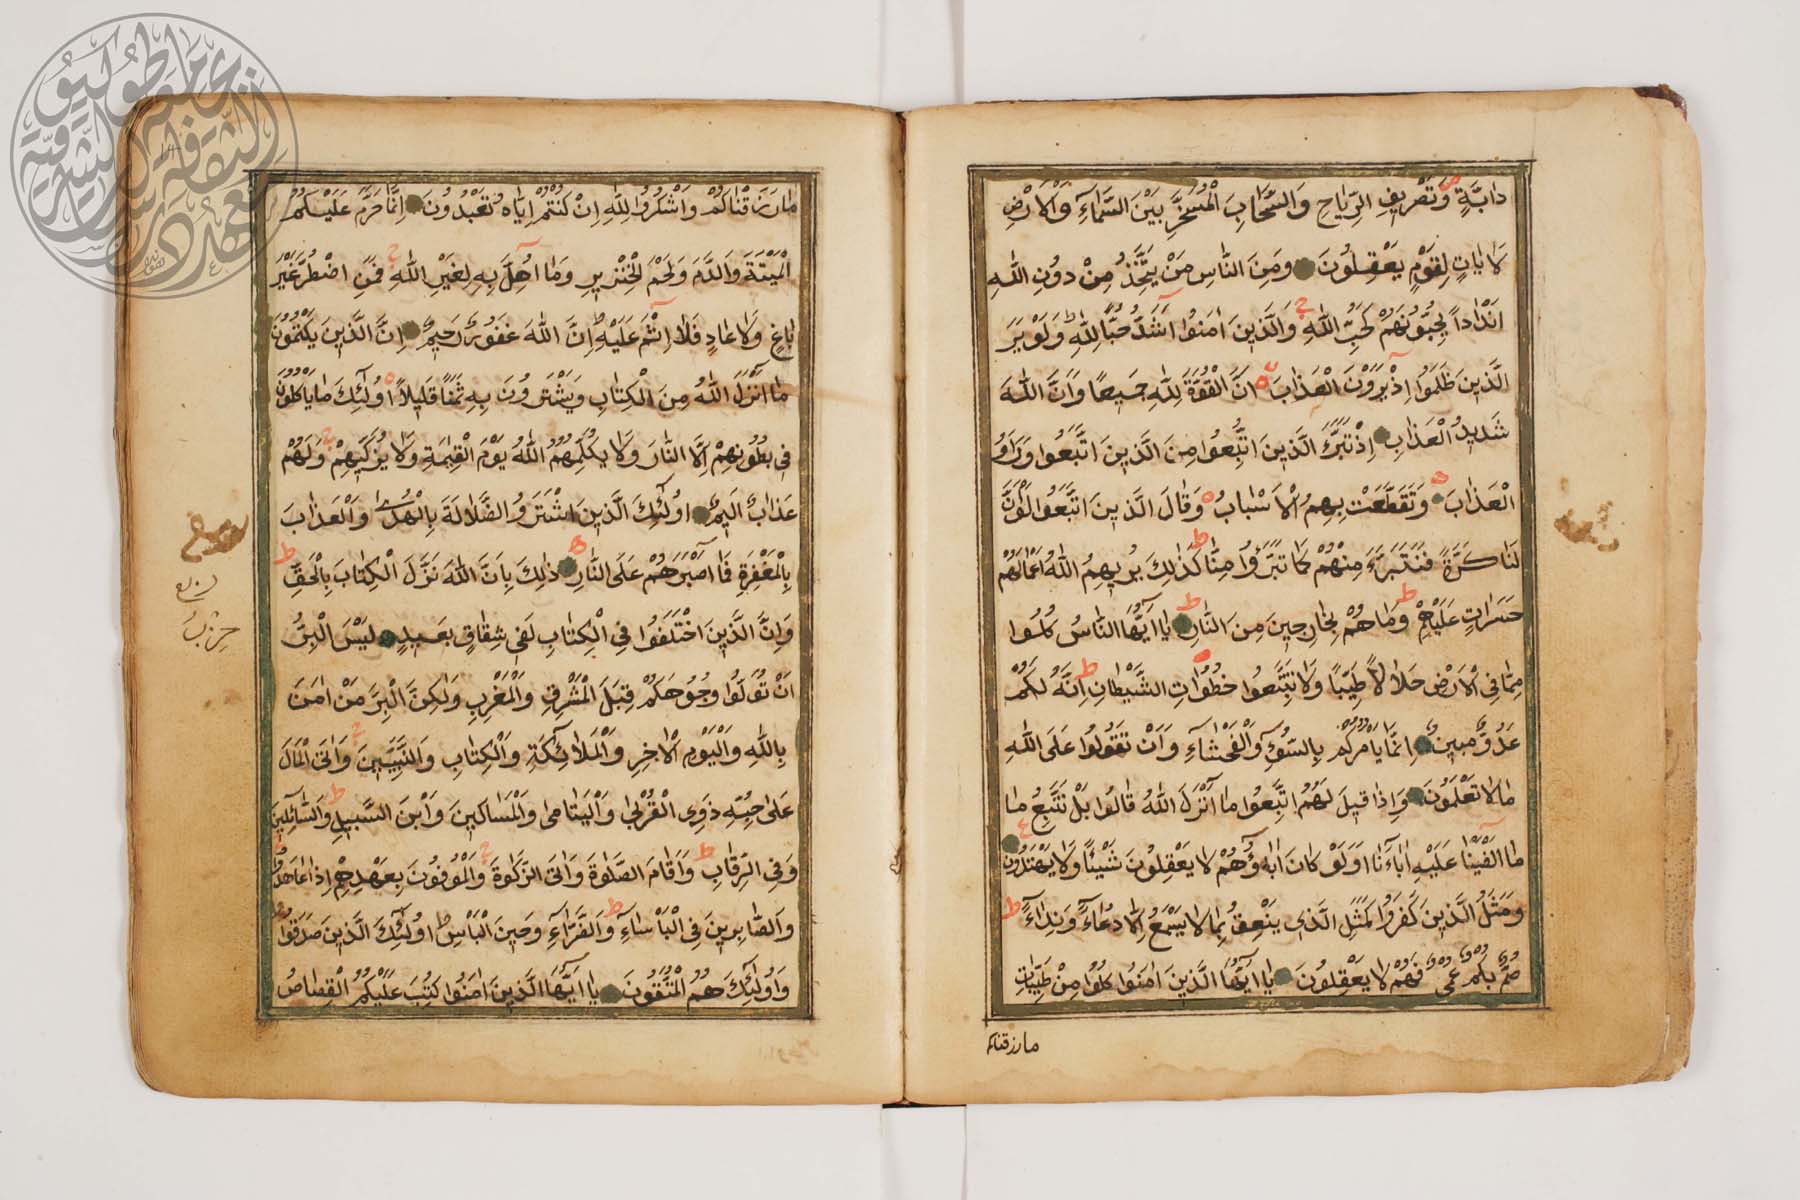 دَابَّةٍ وَتَصْرِيفِ الرِّيَاحِ وَالسَّحَابِ الْمُسَخَّرِ بَيْنَ السَّمَاءِ وَالْاَرْضِ
لَاٰيَاتٍ لِقَوْمٍ يَعْقِلُونَ وَمِنَ النَّاسِ مَنْ يَتَّخِذُ مِنْ دُونِ اللّٰهِ
اَنْدَاداً يُحِبُّونَهُمْ كَحُبِّ اللّٰهِ وَالَّذِينَ اٰمَنُوا اَشَدُّ حُبًّا لِلّٰهِ وَلَوْ يَرَى
الَّذِينَ ظَلَمُوا اِذْ يَرَوْنَ الْعَذَابَ اَنَّ الْقُوَّةَ لِلّٰهِ جَمِيعًا وَاَنَّ اللّٰهَ
شَدِيدُ الْعَذَابِ اِذْ تَبَرَّاَ الَّذِينَ اتُّبِعُوا مِنَ الَّذِينَ اتَّبَعُوا وَرَاَوُ
الْعَذَابَ وَتَقَطَّعَتْ بِهِمُ الْاَسْبَابُ وَقَالَ الَّذِينَ اتَّبَعُوا لَوْ اَنَّ
لَنَا كَرَّةً فَنَتَبَرَّءَ مِنْهُمْ كَمَا تَبَرَّؤُا مِنَّا كَذٰلِكَ يُرِيهِمُ اللّٰهُ اَعْمَالَهُمْ
حَسَرَاتٍ عَلَيْهِمْ وَمَا هُمْ بِخَارِجِينَ مِنَ النَّارِ يَا اَيُّهَا النَّاسُ كُلُوا
مِمَّا فِى الْاَرْضِ حَلَالًا طَيِّبًا وَلَا تَتَّبِعُوا خُطُوَاتِ الشَّيْطَانِ اِنَّهُ لَكُمْ
عَدُوٌّ مُبِينٌ اِنَّمَا يَاْمُرُكُمْ بِالسُّوءِ وَالْفَحْشَاءِ وَاَنْ تَقُولُوا عَلَى اللّٰهِ
مَا لَا تَعْلَمُونَ وَاِذَا قِيلَ لَهُمُ اتَّبِعُوا مَا اَنْزَلَ اللّٰهُ قَالُوا بَلْ نَتَّبِعُ مَا
مَا اَلْفَيْنَا عَلَيْهِ اٰبَاءَنَا اَوَلَوْ كَانَ اٰبَاؤُهُمْ لَا يَعْقِلُونَ شَيْئًا وَلَا يَهْتَدُونَ
وَمَثَلُ الَّذِينَ كَفَرُوا كَمَثَلِ الَّذِى يَنْعِقُ بِمَا لَا يَسْمَعُ اِلَّا دُعَاءً وَنِدَاءً
صُمٌّ بُكْمٌ عُمْىٌ فَهُمْ لَا يَعْقِلُونَ يَا اَيُّهَا الَّذِينَ اٰمَنُوا كُلُوا مِنْ طَيِّبَاتِ
مارزقناكم
مَا رَزَقْنَاكُمْ وَاشْكُرُوا لِلّٰهِ اِنْ كُنْتُمْ اِيَّاهُ تَعْبُدُونَ اِنَّمَا حَرَّمَ عَلَيْكُمُ
الْمَيْتَةَ وَالدَّمَ وَلَحْمَ الْخِنْزِيرِ وَمَا اُهِلَّ بِهِ لِغَيْرِ اللّٰهِ فَمَنِ اضْطُرَّ غَيْرَ
بَاغٍ وَلَا عَادٍ فَلَا اِثْمَ عَلَيْهِ اِنَّ اللّٰهَ غَفُورٌ رَحِيمٌ اِنَّ الَّذِينَ يَكْتُمُونَ
مَا اَنْزَلَ اللّٰهُ مِنَ الْكِتَابِ وَيَشْتَرُونَ بِهِ ثَمَنًا قَلِيلًا اُولٰئِكَ مَا يَاْكُلُونَ
فِى بُطُونِهِمْ اِلَّا النَّارَ وَلَا يُكَلِّمُهُمُ اللّٰهُ يَوْمَ الْقِيٰمَةِ وَلَا يُزَكِّيهِمْ وَلَهُمْ
عَذَابٌ اَلِيمٌ اُولٰئِكَ الَّذِينَ اشْتَرَوُ الضَّلَالَةَ بِالْهُدٰى وَالْعَذَابَ
بِالْمَغْفِرَةِ فَمَا اَصْبَرَهُمْ عَلَى النَّارِ ذٰلِكَ بِاَنَّ اللّٰهَ نَزَّلَ الْكِتَابَ بِالْحَقِّ
وَاِنَّ الَّذِينَ اخْتَلَفُوا فِى الْكِتَابِ لَفِى شِقَاقٍ بَعِيدٍ لَيْسَ الْبِرُّ
اَنْ تُوَلُّوا وُجُوهَكُمْ قِبَلَ الْمَشْرِقِ وَالْمَغْرِبِ وَلٰكِنَّ الْبِرَّ مَنْ اٰمَنَ
بِاللّٰهِ وَالْيَوْمِ الْاٰخِرِ وَالْمَلٰائِكَةِ وَالْكِتَابِ وَالنَّبِيِّينَ وَاٰتَى الْمَالَ
عَلٰى حُبِّهِ ذَوِى الْقُرْبٰى وَالْيَتَامٰى وَالْمَسَاكِينَ وَابْنَ السَّبِيلِ وَالسَّائِلِينَ
وَفِى الرِّقَابِ وَاَقَامَ الصَّلٰوةَ وَاٰتَى الزَّكٰوةَ وَالْمُوفُونَ بِعَهْدِهِمْ اِذَا عَاهَدُوا
وَالصَّابِرِينَ فِى الْبَاْسَاءِ وَالضَّرَّاءِ وَحِينَ الْبَاْسِ اُولٰئِكَ الَّذِينَ صَدَقُوا
وَاُولٰئِكَ هُمُ الْمُتَّقُونَ يَا اَيُّهَا الَّذِينَ اٰمَنُوا كُتِبَ عَلَيْكُمُ الْقِصَاصُ
حزب